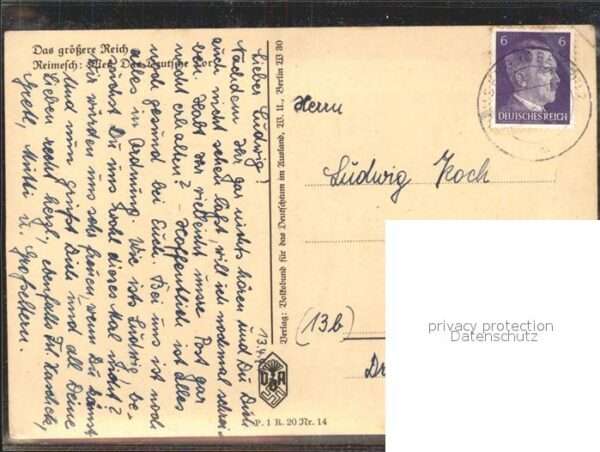 Das größere Reich
Reimesch: Kleß Das deutsche Tor
Lieber Ludwig!
Nachdem Ihr gar nichts hören und Du Dich
auch nicht sehen läßt, will ich nochmal schrei-
ben. Habt Ihr vielleicht unsere Post gar
nicht erhalten? - Hoffentlich ist alles
noch gesund bei Euch. Bei uns ist noch
alles in Ordnung. Wie ists Ludwig, be-
suchst Du uns wohl dieses Mal nicht?
Wir würden uns sehr freuen, wenn Du kämst
Und nun grüßt Dich und all Deine
Lieben recht herzl., ebenfalls
Gretl, Mutti
u. Großeltern.
13.4.
Verlag: Volksbund für das Deutschtum im Ausland, W. U., Berlin W 30
VDA
P. 1 R. 20 Nr. 14
6 6
DEUTSCHES REICH
Herrn
Ludwig Koch
(13b)
privacy protection
Datenschutz